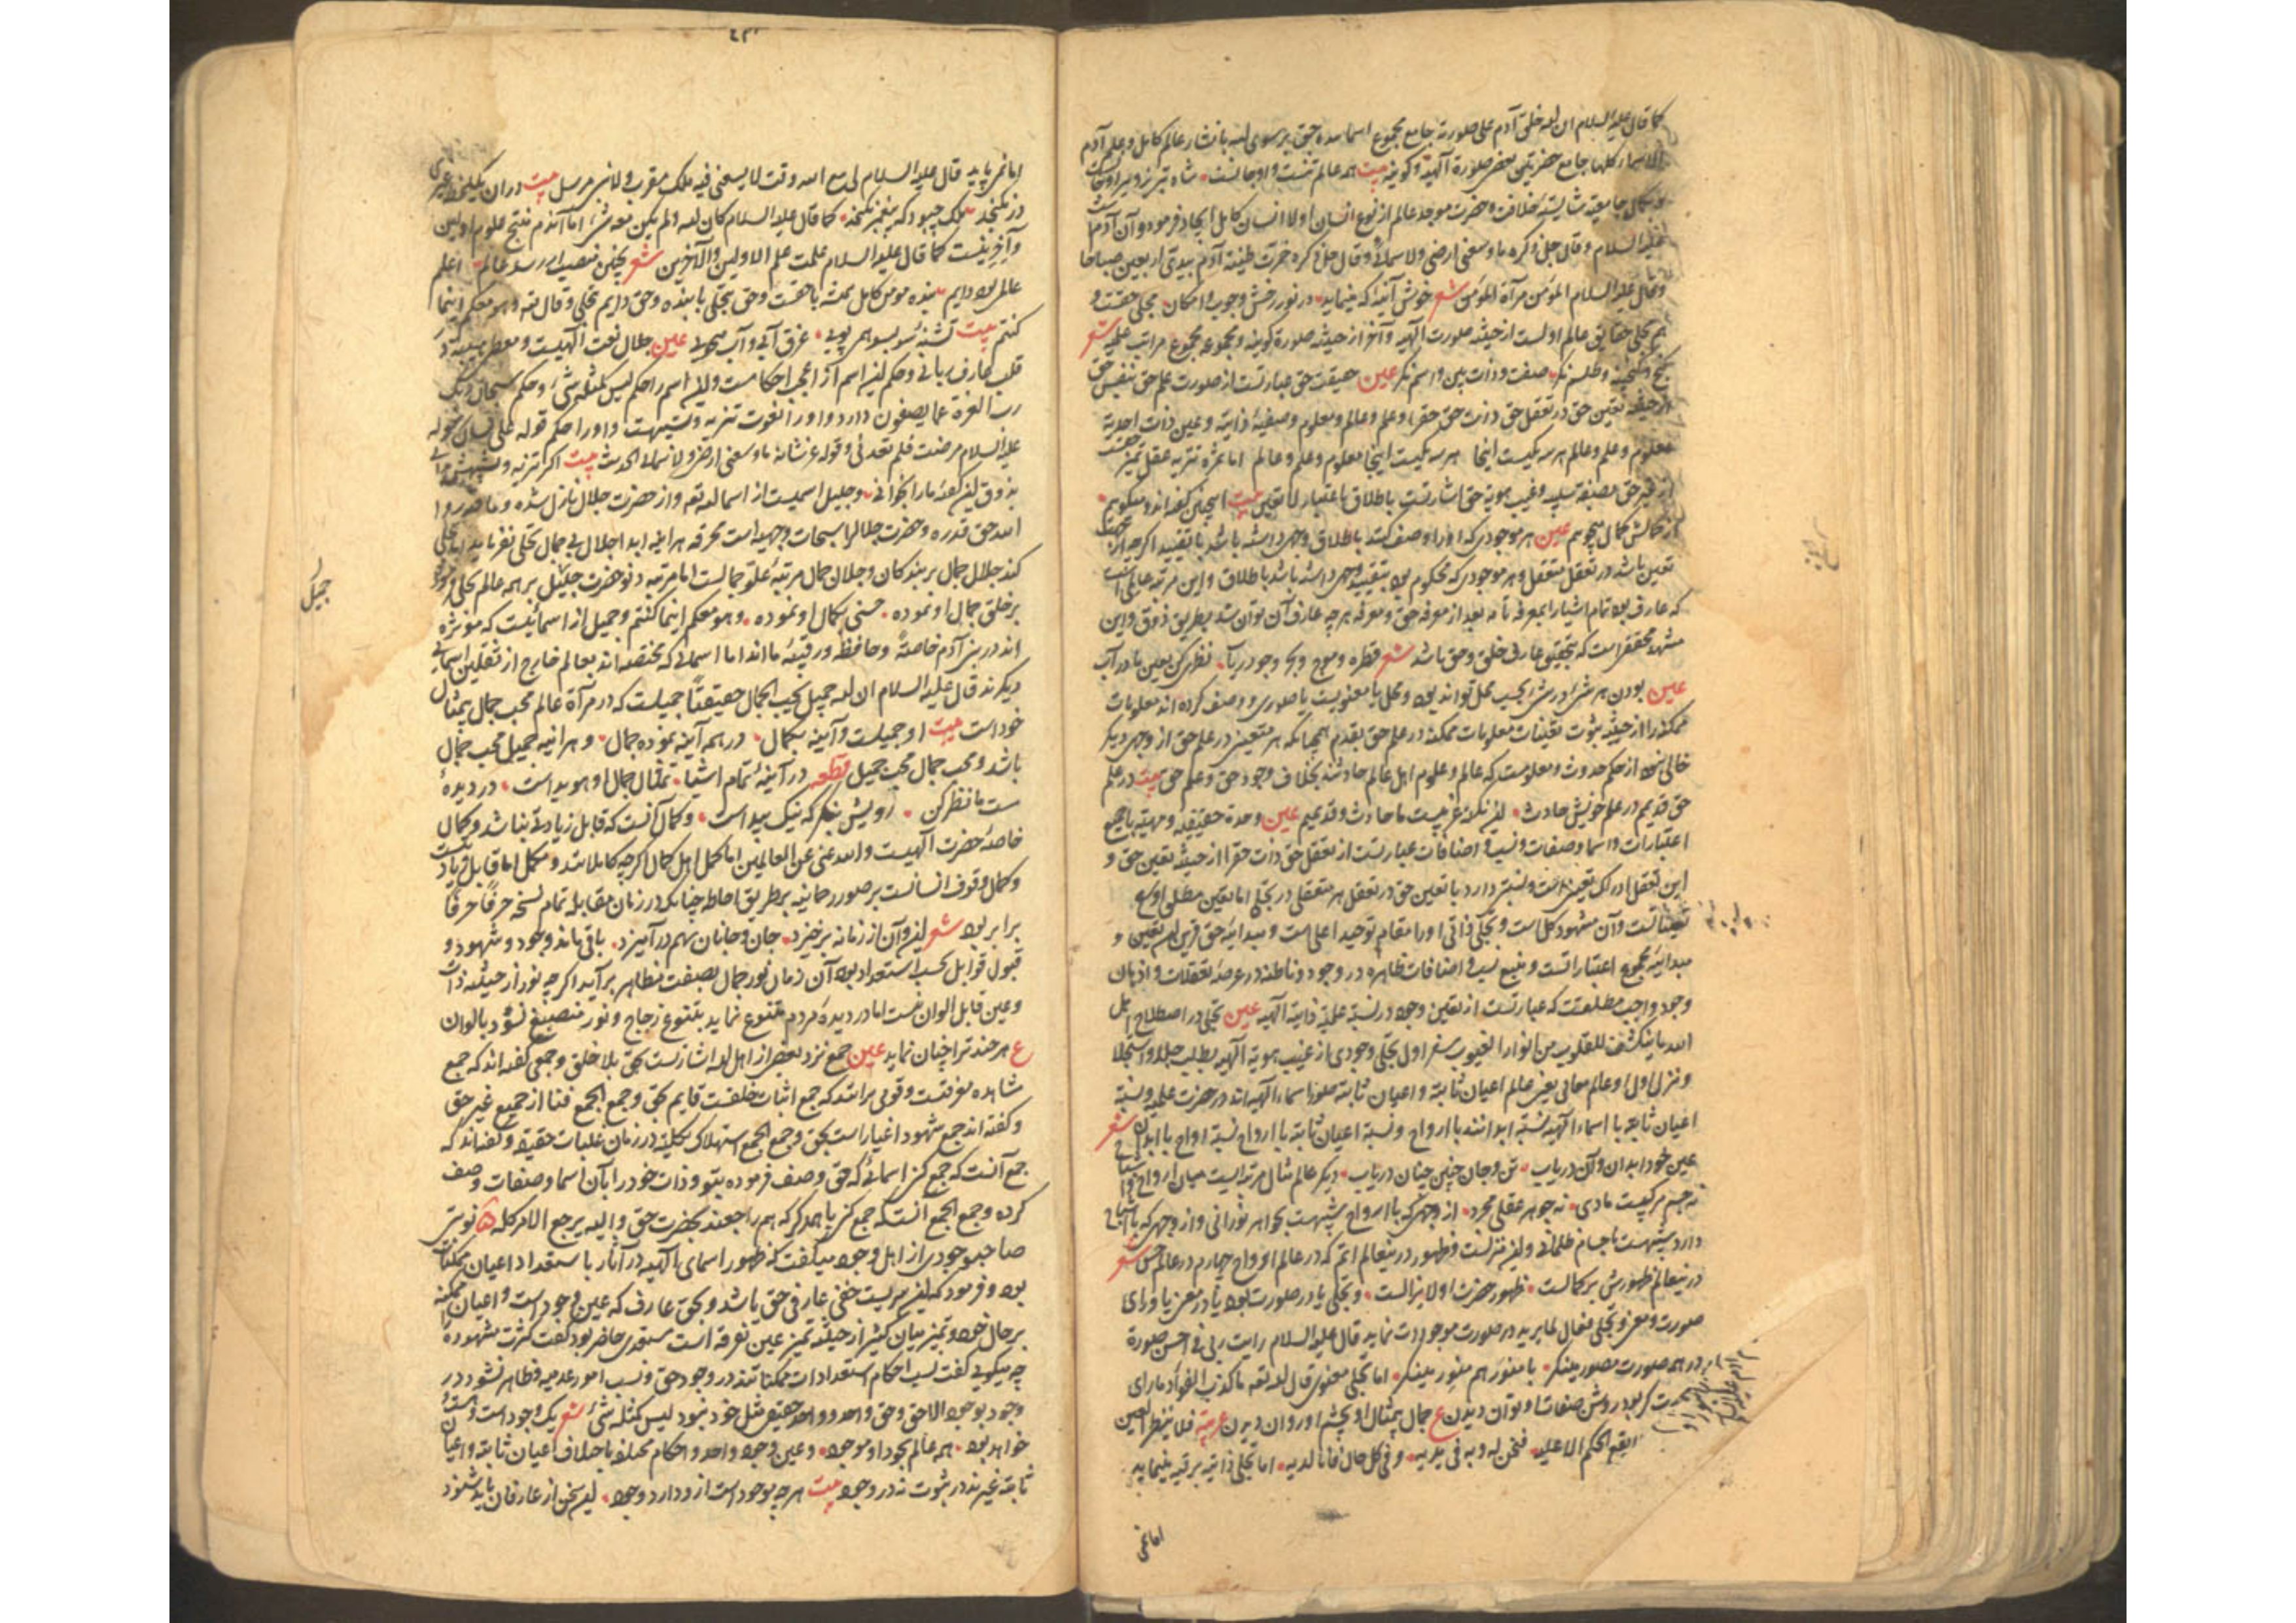 کما قال علیه السلام ان الله خلق آدم علی صورته جامع مجموع اسما
جامع حضرتین یعنی صورة الهیه و کونیه بیت همه عالم تنست و او جانست شاه تبریز و میر اوجانست
شایسته خلافت و حضرت موجد عالم از نوع انسان اولا انسان کامل ایجاد فرمود و آن آدم
علیه السلام و قال جل ذکره ما وسعنی ارضی ولا سمائی و قال جل ذکره خمرت طینة آدم بیدی اربعین صباحا
و قال علیه السلام المؤمن مرآة المؤمن شعر خوش آینه که مینماید در نور رخش وجوب و امکان
حقایق عالم اولست از حیثیه صورت الهیه و آخر از حیثیه صورة کونیه و مجموعه مجموع مراتب علمیه شعر
گنج و گنجینه و طلسم نگر صفت و ذات بین و اسم نگر عین حقیقت حق عبارتست از صورت علم حق بنفس حق
از حیثیه تعین حق در تعقل حق ذات حق و علم و عالم و معلوم و صفیه ذاتیه و عین ذات احدیه
معلوم و علم و عالم هر سه یکیست اینجا هر سه یکیست اینجا معلوم و علم و عالم اما غیره تنزیه عقل
غیب هویة حق اشارتست باطلاق باعتبار لا تعین بیت اینچنین گفته اند و میگویم
از کمالش کمال میجویم عین هر موجودی که او را وصف کنند باطلاق وجهی داشته باشد با تقیید اگر چه
تعین باشد در تعقل متعقل و هر موجودی که محکوم بود بتقیید وجهی داشته باشد باطلاق و این مرتبه عالی است
که عارف بود تمام اشیا را بمعرفه تامه بعد از معرفه حق و معرفه هر چه عارف آن توان شد بطریق ذوق و این
مشهد محققی است که بتحقیق عارف خلق و حق باشد شعر قطره و موج و بحر و جو دریاب نظری کن بعین ما در آب
عین بودن هر شیء در شیء بحسب محل تواند بود و محل یا معنویست یا صوری و وصف کرده اند معلومات
ممکنه را از حیثیه ثبوت تعینات معلومات ممکنه در علم حق بقدم همچنانکه هر متعین در علم حق از وجهی دیگر
خالی نبود از حکم حدوث و معلومست که عالم و علوم اهل عالم حادثند بخلاف وجود حق و علم حق بیت در علم
حق قدیم در علم خویش حادث این نکته غریبست ما حادث و قدیمیم عین وحدة حقیقیه و مهیته بجمیع
اعتبارات و اسما و صفات و نسب و اضافات عبارتست از تعقل حق ذات حق را از حیثیه تعین حق و
این تعقل ادراک تعینی است و نسبتی دارد با تعین حق در تعقل هر متعقلی در تجلی اما تعین مطلق اوسع
تعیناتست و آن مشهود کمل است و تجلی ذاتی او را مقام توحید اعلی است و مبدائیة حق قرین این تعین و
مبدائیه مجموع اعتباراتست و منبع نسب و اضافات ظاهره در وجود و باطنه در عرصه تعقلات و اذهان
وجود واجب مطلقست که عبارتست از تعین وجود در نسبة علمیه ذاتیه الهیه عین تجلی در اصطلاح اهل
الله ما ینکشف للقلوب من انوار الغیوب سفر اول تجلی وجودی از غیب هویة الهیه بطلب جلا و استجلا
و تنزل اول او عالم معانی یعنی عالم اعیان ثابته و اعیان ثابته صور اسماء الهیه اند در حضرت علمیه و نسبة
اعیان ثابته با اسماء الهیه نسبة ابدانند با ارواح و نسبة اعیان ثابته با ارواح نسبة ارواح با ابدان شعر
عین خود ابدان و آن دریاب تن و جان چنین چنان دریاب دیگر عالم مثال مرتبه ایست میان ارواح و
نه جسم مرکبست مادی نه جوهر عقلی مجرد از وجهی که با ارواح شبیهست بجواهر نورانی و از وجهی که با اشباح
دارد شبیهست باجسام ظلمانی و این تنزلست و ظهور در ینعالم اتم که در عالم ارواح چهارم در عالم حس شعر
در ینعالم ظهورش بر کمالست ظهور حضرت او لا یزالست و تجلی یا در صورت بود یا در معنی یا ورای
صورت و معنی و تجلی فعال لما یرید در صورت موجودات نماید قال علیه السلام رایت ربی فی احسن صورة
در همه صورت مصور مینگر با منور هم منور مینگر اما تجلی معنوی قال الله تعه ما کذب الفواد ما رای
روشن صفات او توان دیدن ع جمال بیمثال او بچشم او روان دیدن عربیه فلا تنظر العین
الا علیه فنحن له و به فی یدیه و فی کل حال فانا لدیه اما تجلی ذاتیه برقیه مینماید
اما نمی
اما نمی پاید قال علیه السلام لی مع الله وقت لا یسعنی فیه ملک مقرب ولا نبی مرسل بیت در ان یکلحظه غیری
در نگنجد ملک چبود که پیغمبر نگنجد کما قال علیه السلام کان الله ولم یکن معه شیء اما آندم نتیج علوم اولین
و آخرینست کما قال علیه السلام علمت علم الاولین والآخرین شعر اینچنین منصب ار رسد عالم اعلم
عالم بود دایم بنده مومن کامل همیشه با حقست و حق متجلی با بنده و حق دایم تجلی و قال تعه وهو معکم اینما
کنتم بیت تشنه سو بسو همی پویی غرق آبی و آب میجویی عین جلال نعت الهیست و معطی هیبت در
قلب عارف ربانی و حکم این اسم از اعجب احکامست و این اسم را حکم لیس کمثله شیء و حکم سبحان ربک
رب العزة عما یصفون دارد و او را نعوت تنزیه و تشبیهست و او را حکم قوله علی لسان رسوله
علیه السلام مرضت فلم تعدنی و قوله عز شانه ما وسعنی ارضی ولا سمائی الحدیث بیت اگر تنزیه و تشبیهش بدانی
بذوق این گفته ما را بخوانی و جلیل اسمیست از اسما الله تعه و از حضرت جلال نازل شده و ما قدروا
الله حق قدره و حضرت جلال را سبحات وجهیه است محرقه هر اینه ابدا جلال بی جمال تجلی نفرماید اما تجلی
کند جلال جمال بر بندگان و جلال جمال مرتبه علو جمالست اما مرتبه دنو حضرت جلیل بر همه عالم تجلی کرد
بر خلق جمال او نموده حسنی بکمال او نموده وهو معکم اینما کنتم و جمیل از اسمائیست که موثره
اند در بنی آدم خاصة و حافظه و رقیبه ما اند اما اسمائی که مختصه اند بعالم خارج از ثقلین اسمائی
دیگرند قال علیه السلام ان الله جمیل یحب الجمال حقیقتا جمیلست که در مرآة عالم محب جمال بیمثال
خود است بیت او جمیلست و آینه بکمال در همه آینه نموده جمال و هر اینه جمیل محب جمال
باشد و محب جمال محب جمیل قطعه در آینه تمام اشیا تمثال جمال او هویداست در دیده
ست ما نظر کن رویش بنگر که نیک پیداست و کمال آنست که قابل زیادتی نباشد و کمال
خاصه حضرت الهیست والله غنی عن العالمین اما کمل اهل کمال اگر چه کاملانند و مکمل اما قابل زیادتیست
و کمال وقوف انسانست بر صور رحمانیه بر طریق احاطه چنانکه در زمان مقابله تمام نسخه حرفا حرفا
برابر بود شعر این و آن از زمانه برخیزد جان و جانان بهم در آمیزد باقی ماند وجود و شهود و
قبول قوابل بحسب استعداد بود آن زمان نور جمال بصفت مظاهر برآید اگر چه نور از حیثیه ذات
و عین قابل الوان نیست اما در دیده مردم متنوع نماید بتنوع زجاج و نور منصبغ نشود بالوان
ع هر چند ترا چنان نماید عین جمع نزد بعضی از اهل الله اشارتست بحق بلا خلق و جمعی گفته اند که جمع
مشاهده معرفتست و قومی برانند که جمع اثبات خلقست قایم بحق و جمع الجمع فنا از جمیع غیر حق
و گفته اند جمع شهود اغیار است بحق و جمع الجمع استهلاک بکلیت در زمان غلبات حقیقه و گفته اند که
جمع آنست که جمع کنی اسمائی که حق وصف فرموده بتو و ذات خود را بآن اسما و صفات وصف
کرده و جمع الجمع انست که جمع کنی با همدگر که هم راجعند بحضرت حق والیه یرجع الامر کله نوبتی
صاحب وجودی از اهل وجود میگفت که ظهور اسمای الهیه در آثار باستعداد اعیان ممکنات
بود و فرمود که این سریست خفی عارفی حق باشد و بحق عارف که عین وجود است و اعیان ممکنه
بر حال خود و تمیز میان کثیر از حیثیه تمیز عین تفرقه است مستعدی حاضر بود گفت کثرت مشهوده
چه میگوئی گفت نسب احکام استعدادات ممکناتند در وجود حق و نسب امور عدمیه و ظاهر نشود در
وجود بوجود الا حق و حق واحد و واحد حقیقی مثل خود نبود لیس کمثله شیء شعر یک وجود است و
خواهد بود همه عالم بجود او موجود و عین وجود واحد و احکام مختلفه باختلاف اعیان ثابته و اعیان
ثابته غیرند در ثبوت نه در وجود بیت هر چه موجود است ازو دارد وجود این سخن از عارفان باید شنود
جمیل